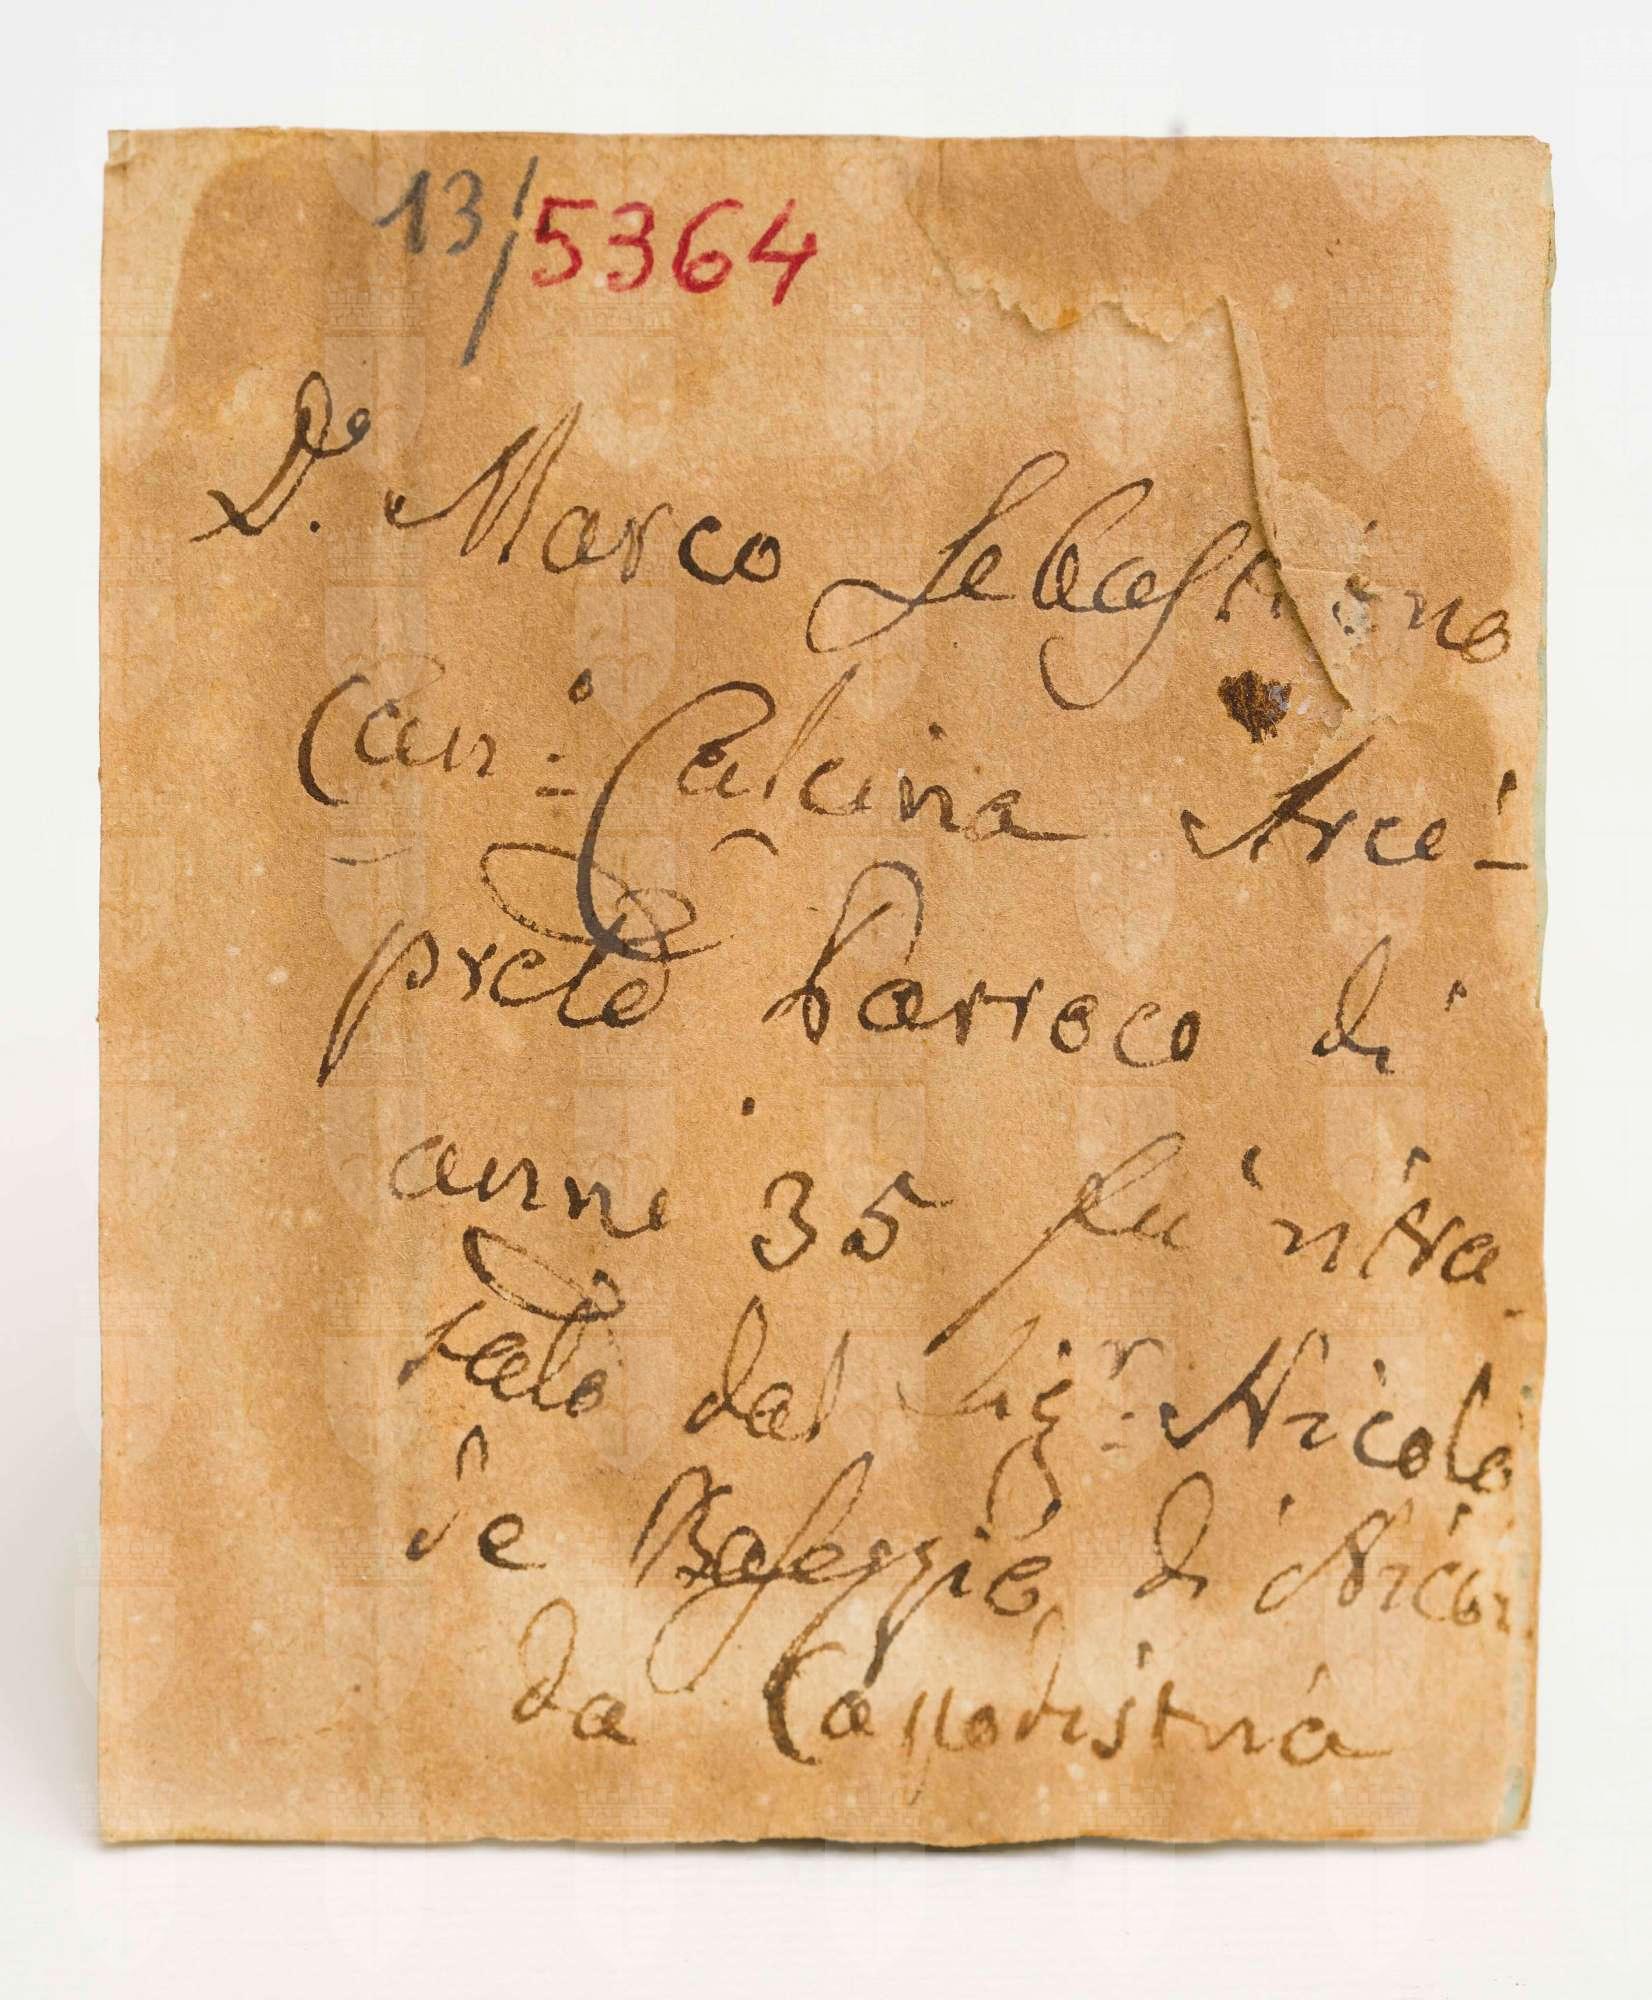 13/5364
Do. Marco Sebastiano
Can:o Calcina Arci-
prete Parroco di
anni 35 fu ritra-
tato dal Sigr. Nicolo
de Baseggio di Nicoo.
da Capodistria